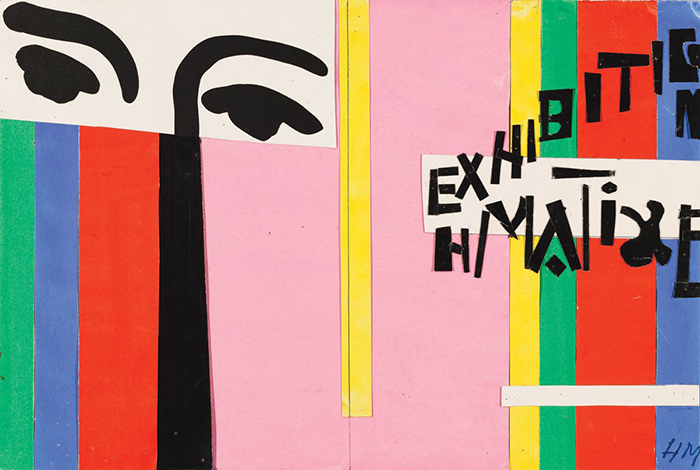 EXHIBITION
H MATISSE
HM